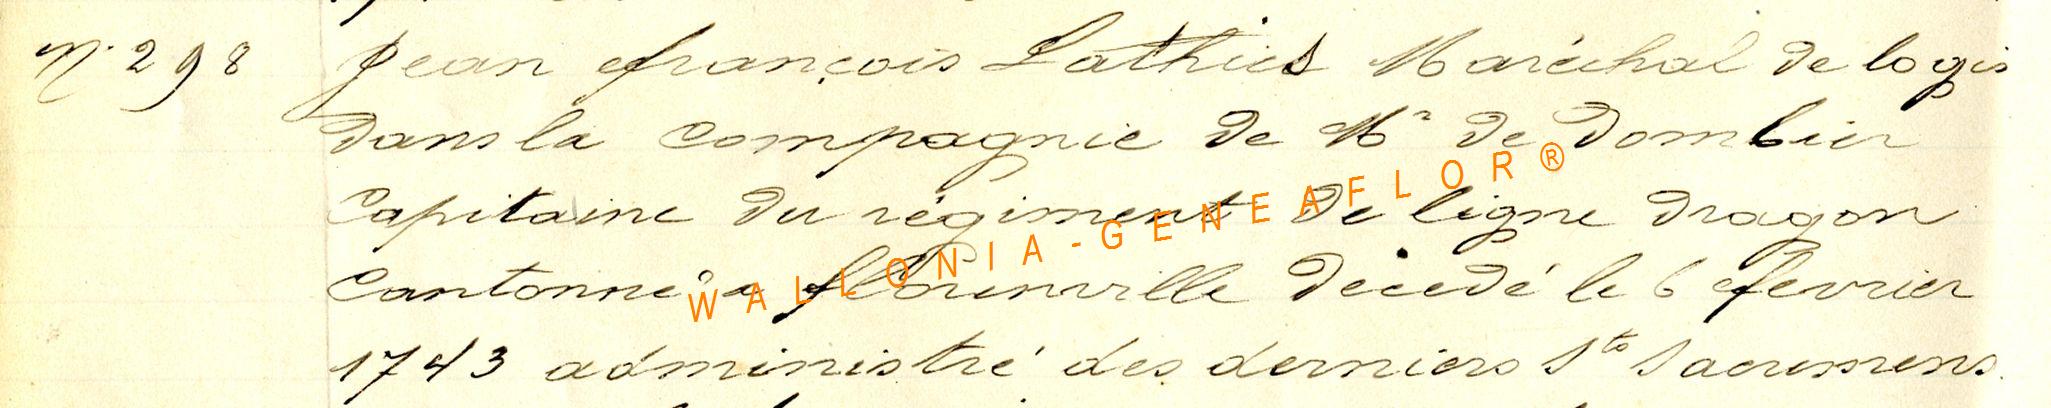 N. 298 Jean françois Lathier Maréchal de logis
dans la compagnie de Mr de Dombier
Capitaine du régiment de ligne dragon
Cantonné a florenville décedé le 6 fevrier
1743 administré des derniers Sts Sacremens.
WALLONIA-GENEAFLOR®